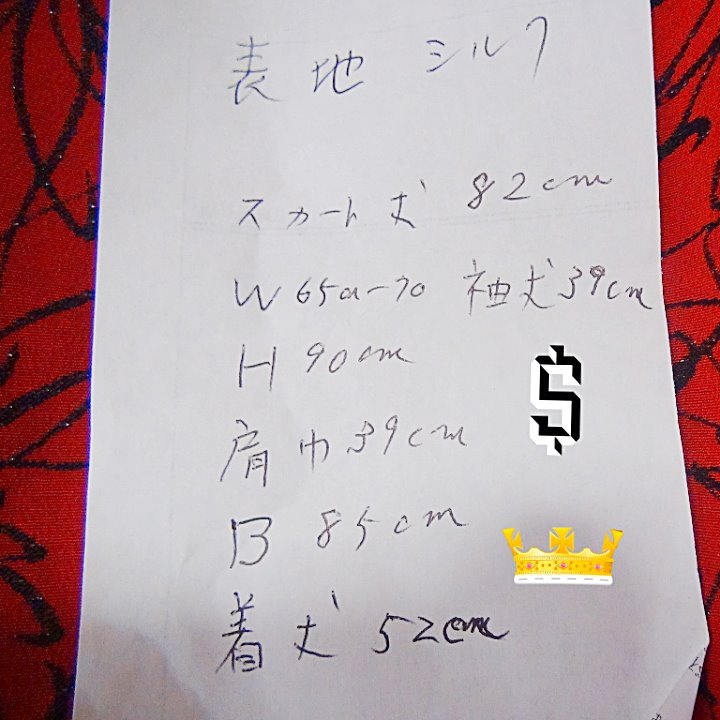 表地 シルク
スカート丈 82cm
W 65a-70 袖丈39cm
H 90cm
$
肩巾39cm
B 85cm
着丈 52cm